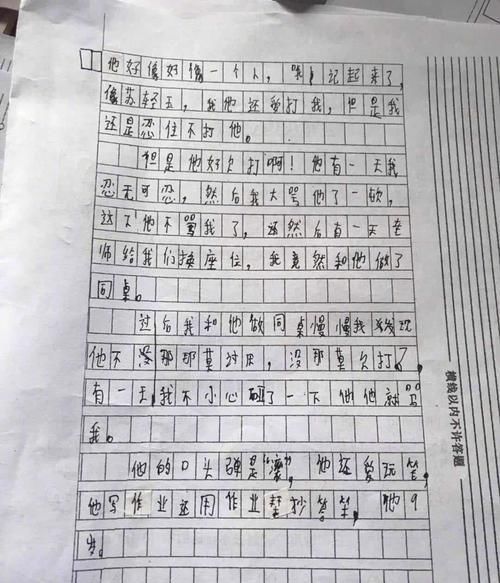 他好像好像一个人，我记起来了，
像苏轻玉，我他还爱打我，但是我
还是忍住不打他。
但是他好欠打啊！他有一天我
忍无可忍，然后我大骂他了一顿，
这下他不骂我了，还然后有一天老
师给我们换座位，我竟然和他做了
同桌。
过后我和他做同桌慢慢我发现
他不没那那莫讨厌，没那莫欠打了。
有一天我不小心碰了一下他他就骂
我。
他的口头弹是“滚”，他还爱玩笔，
他写作业还用作业帮抄答案，他9
岁。
横线以内不许答题